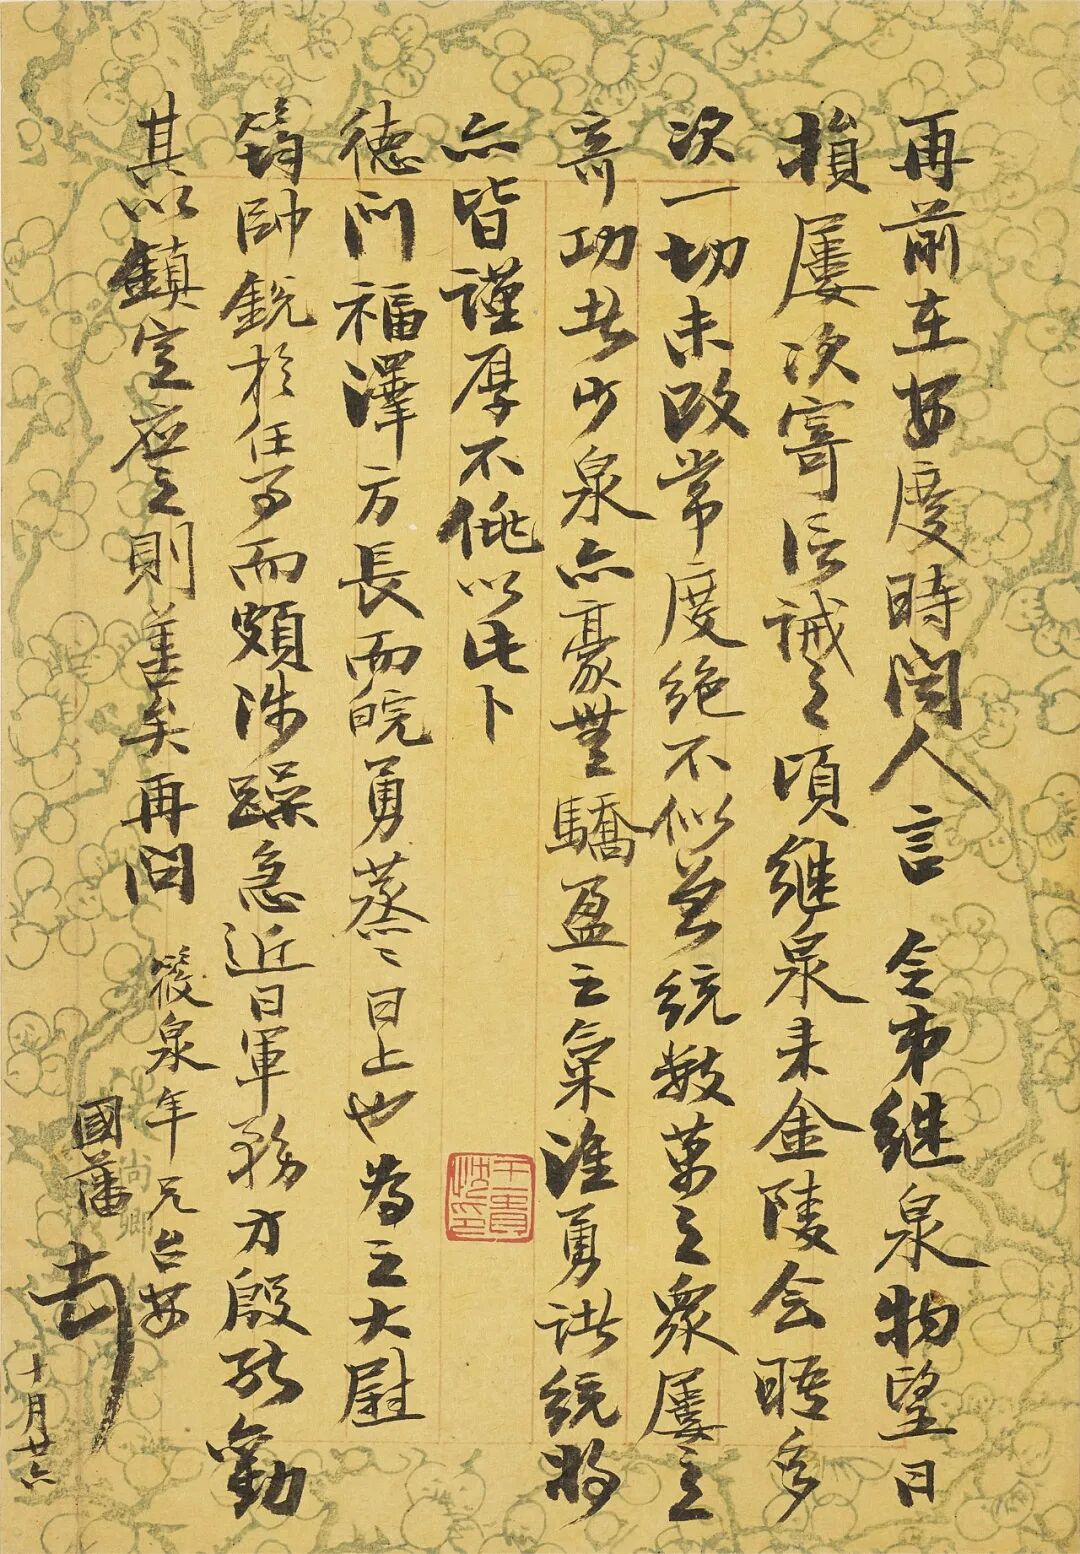 再前在安慶時聞人言 令弟继泉物望日
損屡次寄信誡之頃继泉来金陵会晤多
次一切未改常度绝不似曾統數萬之衆屡立
奇功者少泉亦豪無驕盈之氣淮勇諸統將
亦皆謹厚不佻以此卜
德门福澤方長而皖勇蒸〻日上也為之大慰
筠帥銳於任事而頗涉躁急近日軍務方殷祈勸
其以鎮定應之則善矣再问 筱泉年兄台安
國藩 十月廿六
王貴忱印